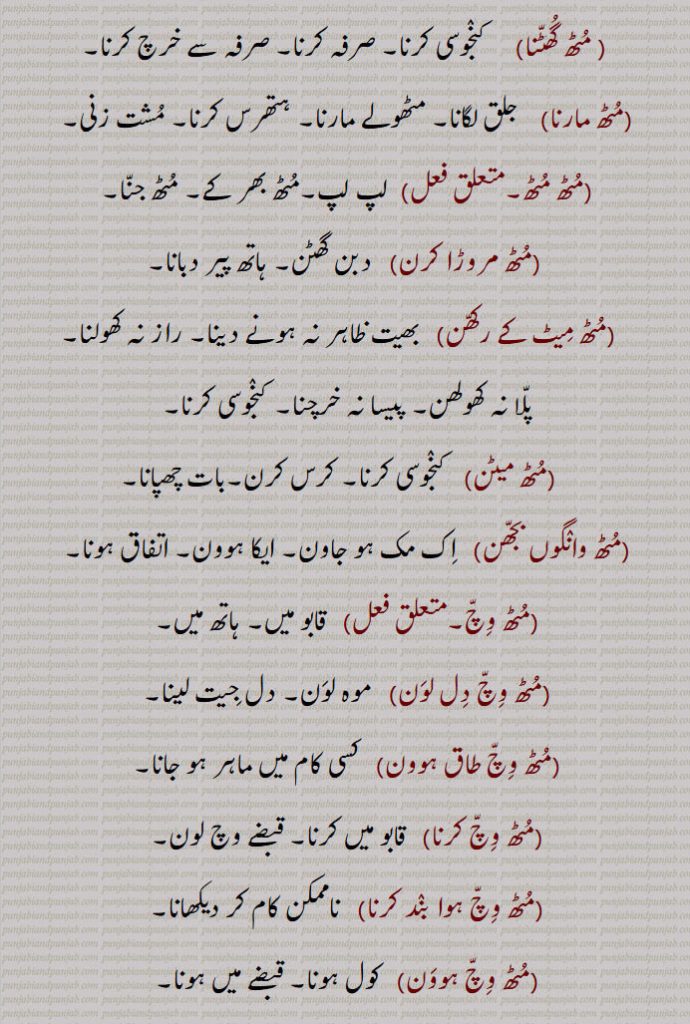 ( مُٹھ گُھٹّنا) کنجُوسی کرنا۔ صرفہ کرنا۔ صرفہ سے خرچ کرنا۔
(مُٹھ مارنا) جلق لگانا۔ مٹھولے مارنا۔ ہتھرس کرنا۔ مُشت زنی۔
(مُٹھ مُٹھ۔متعلق فعل) لپ لپ۔مُٹھ بھر کے۔ مُٹھ جنّا۔
(مُٹھ مروڑا کرن) دبن گھٹن۔ ہاتھ پیر دبانا۔
(مُٹھ مِیٹ کے رکھّن) بھیت ظاہر نہ ہونے دینا۔ راز نہ کھولنا۔
پلّا نہ کھولھن۔ پیسا نہ خرچنا۔ کنجُوسی کرنا۔
(مُٹھ میٹن) کنجُوسی کرنا۔ کرس کرن۔بات چھپانا۔
(مُٹھ وانگوں بجھّن) اِک مک ہو جاون۔ ایکا ہوون۔ اتفاق ہونا۔
(مُٹھ وِچّ۔متعلق فعل) قابو میں۔ ہاتھ میں۔
(مُٹھ وِچّ دِل لوَن) موہ لوَن۔ دل جِیت لینا۔
(مُٹھ وِچّ طاق ہوون) کسی کام میں ماہر ہو جانا۔
(مُٹھ وِچّ کرنا) قابو میں کرنا۔ قبضے وچ لون۔
(مُٹھ وِچّ ہوا بنْد کرنا) ناممکن کام کر دیکھانا۔
(مُٹھ وِچّ ہووَن) کول ہونا۔ قبضے میں ہونا۔